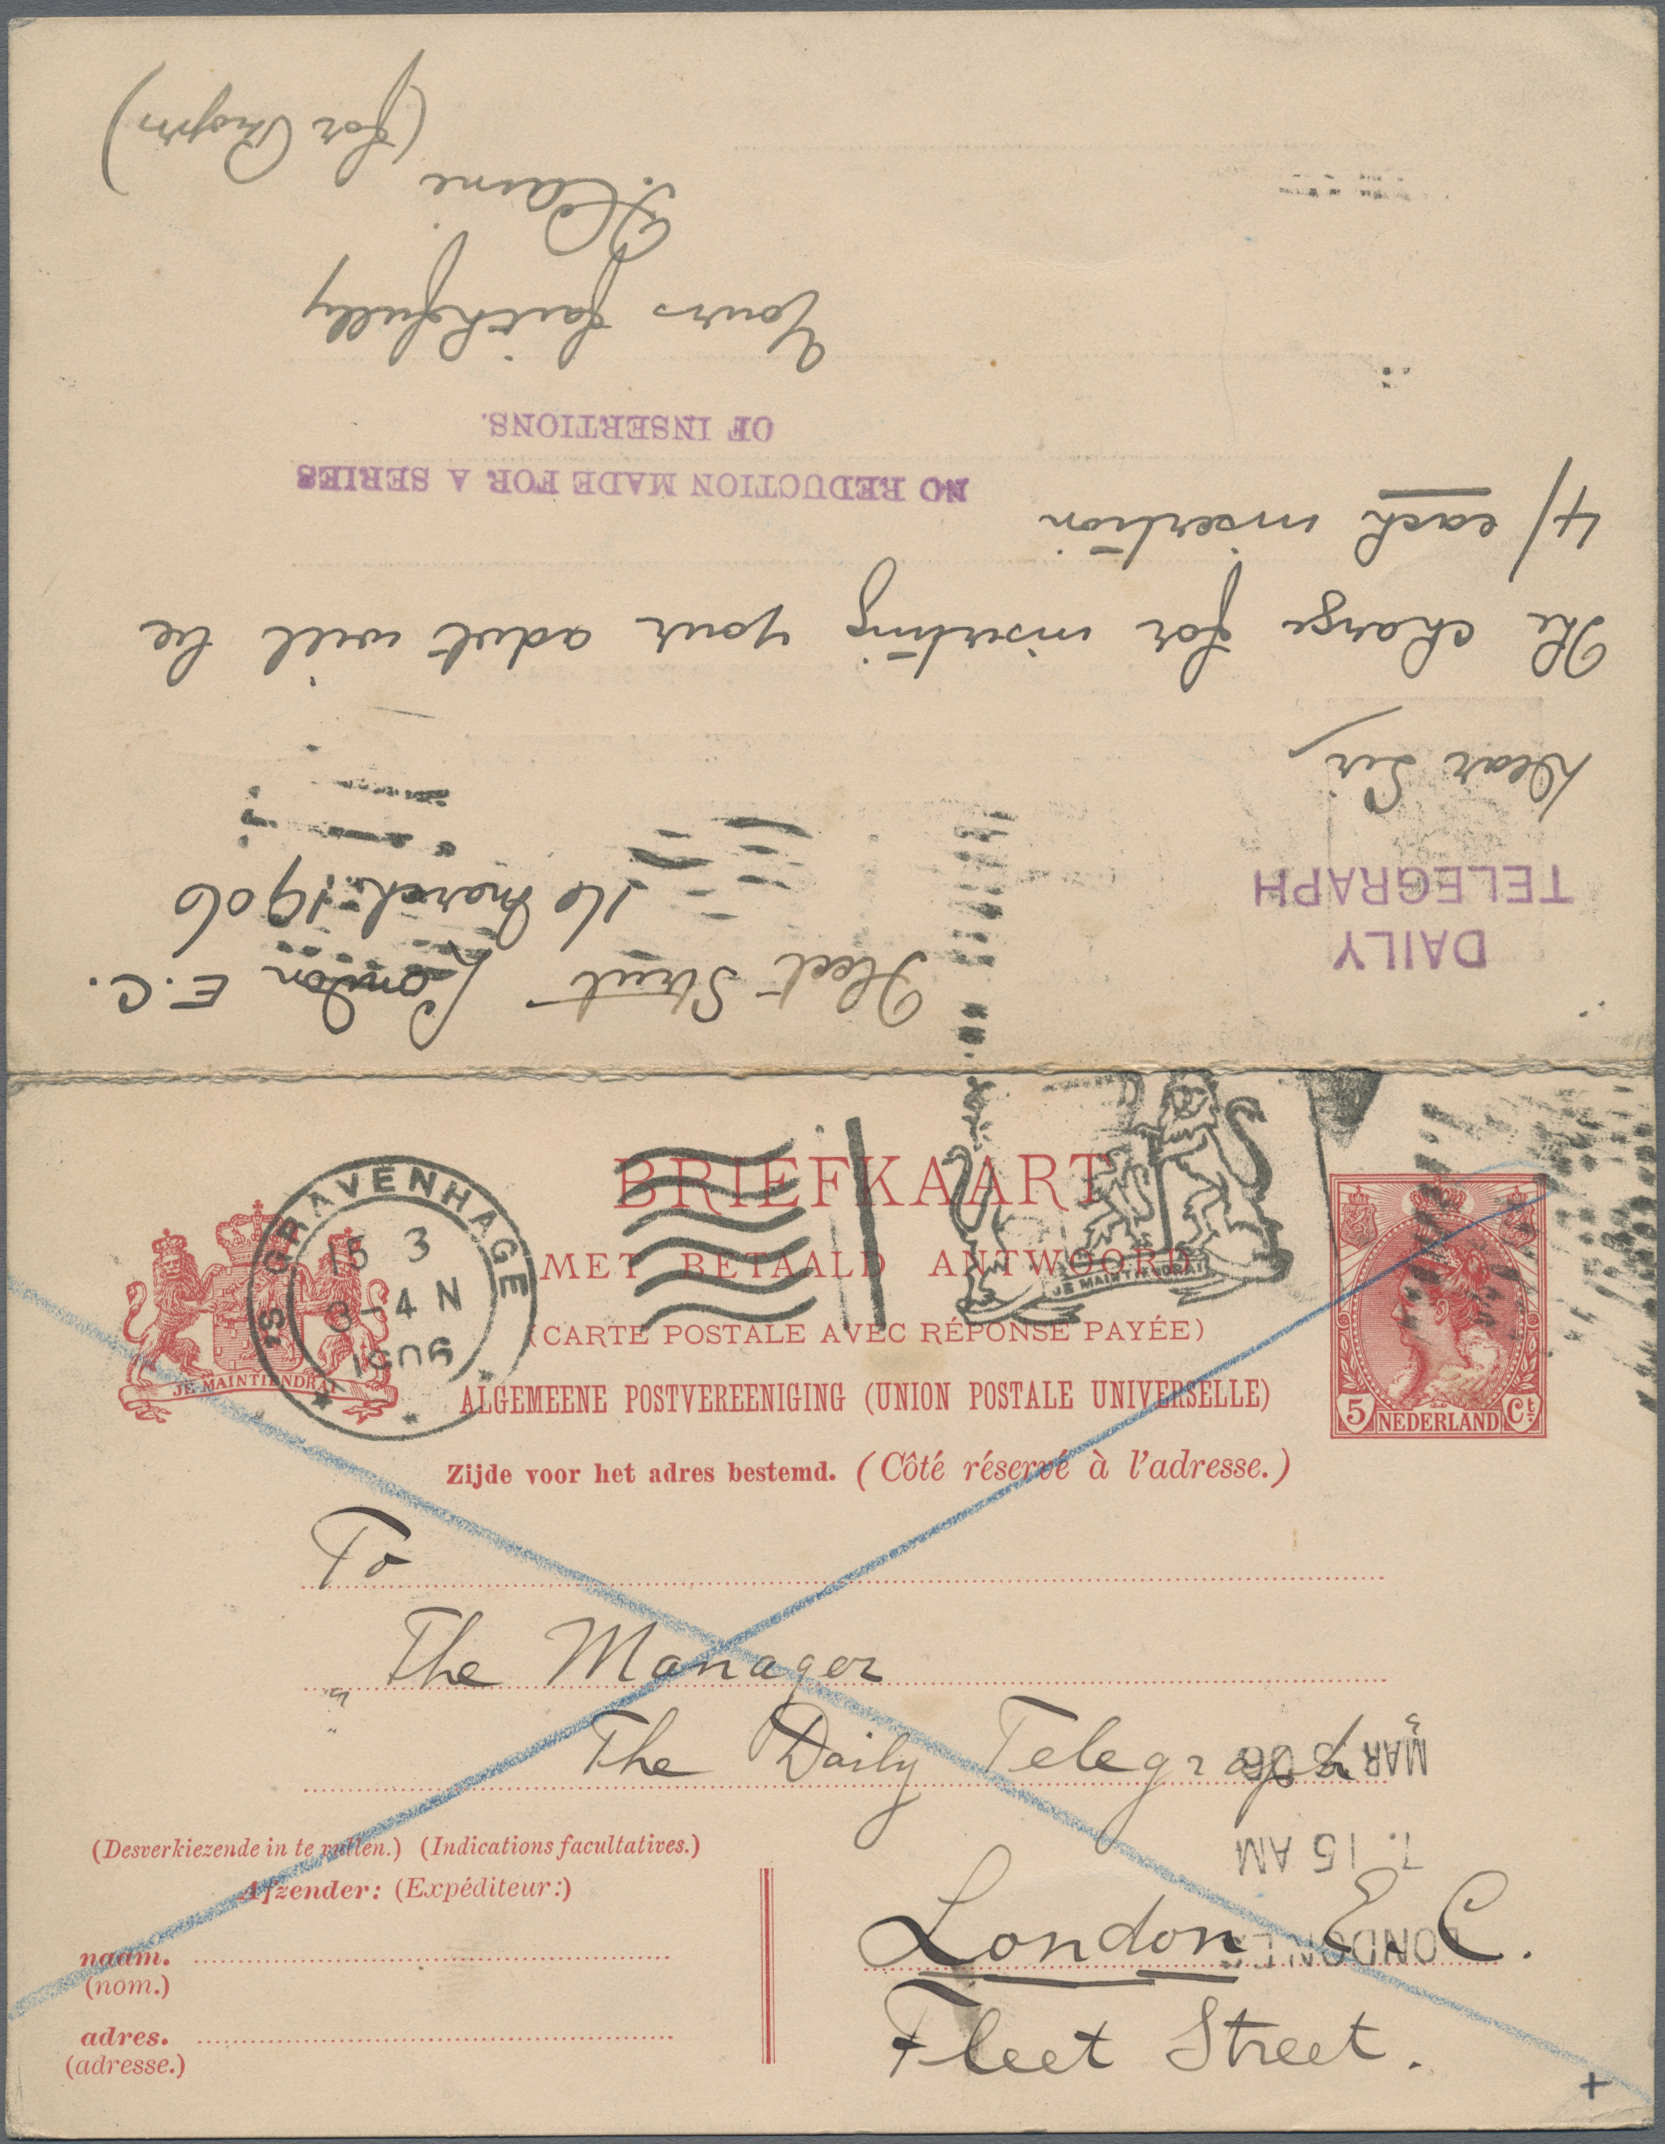 BRIEFKAART
MET BETAALD ANTWOORD
(CARTE POSTALE AVEC RÉPONSE PAYÉE)
ALGEMEENE POSTVEREENIGING (UNION POSTALE UNIVERSELLE)
Zijde voor het adres bestemd. (Côté réservé à l'adresse.)
JE MAINTIENDRAI
'S GRAVENHAGE
15 3
3-4 N
1906
JE MAINTIENDRAI
5 NEDERLAND Ct
To
The Manager
The Daily Telegraph
London E. C.
Fleet Street.
MAR 06
7.15 AM
LONDON
(Desverkiezende in te vullen.) (Indications facultatives.)
Afzender: (Expéditeur:)
naam.
(nom.)
adres.
(adresse.)
+
Fleet Street London E.C.
DAILY
TELEGRAPH
16 March 1906
Dear Sir,
The charge for inserting your advt will be
4/ each insertion
NO REDUCTION MADE FOR A SERIES
OF INSERTIONS.
Yours faithfully
(for Proprs)